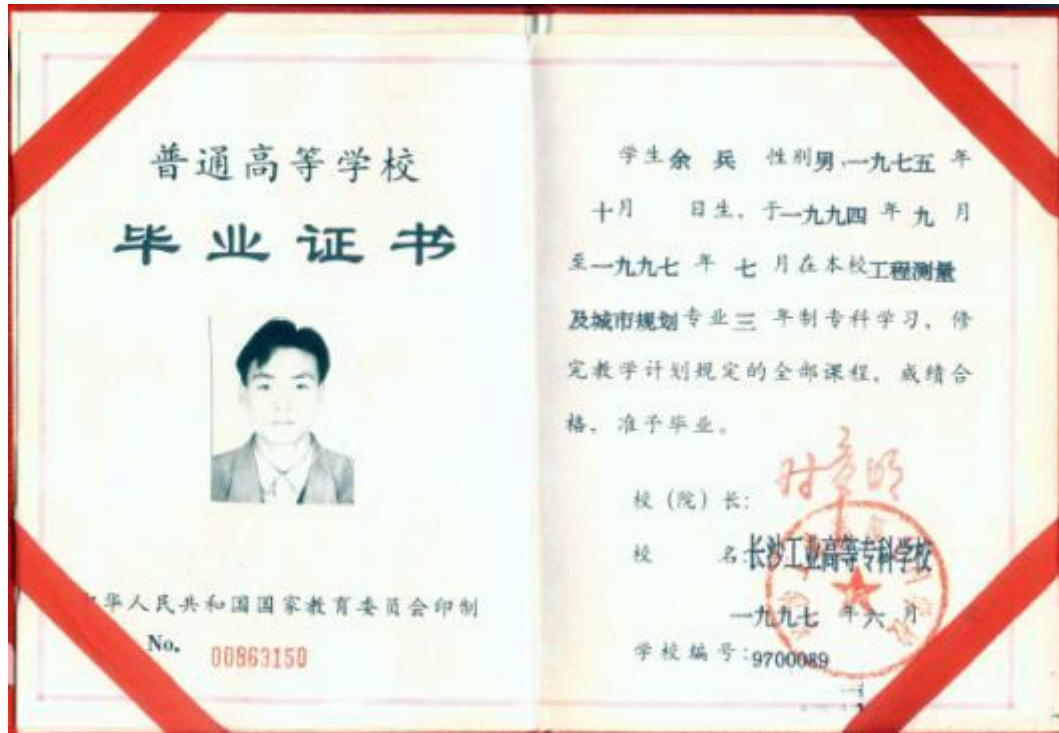 普通高等学校
毕业证书
中华人民共和国国家教育委员会印制
No. 00863150
学生余 兵 性别男,一九七五 年
十月 日生,于一九九四 年 九 月
至一九九七 年 七 月在本校工程测量
及城市规划专业三 年制专科学习,修
完教学计划规定的全部课程,成绩合
格,准予毕业。
校(院)长:
校 名:长沙工业高等专科学校
一九九七 年六 月
学校编号:9700089